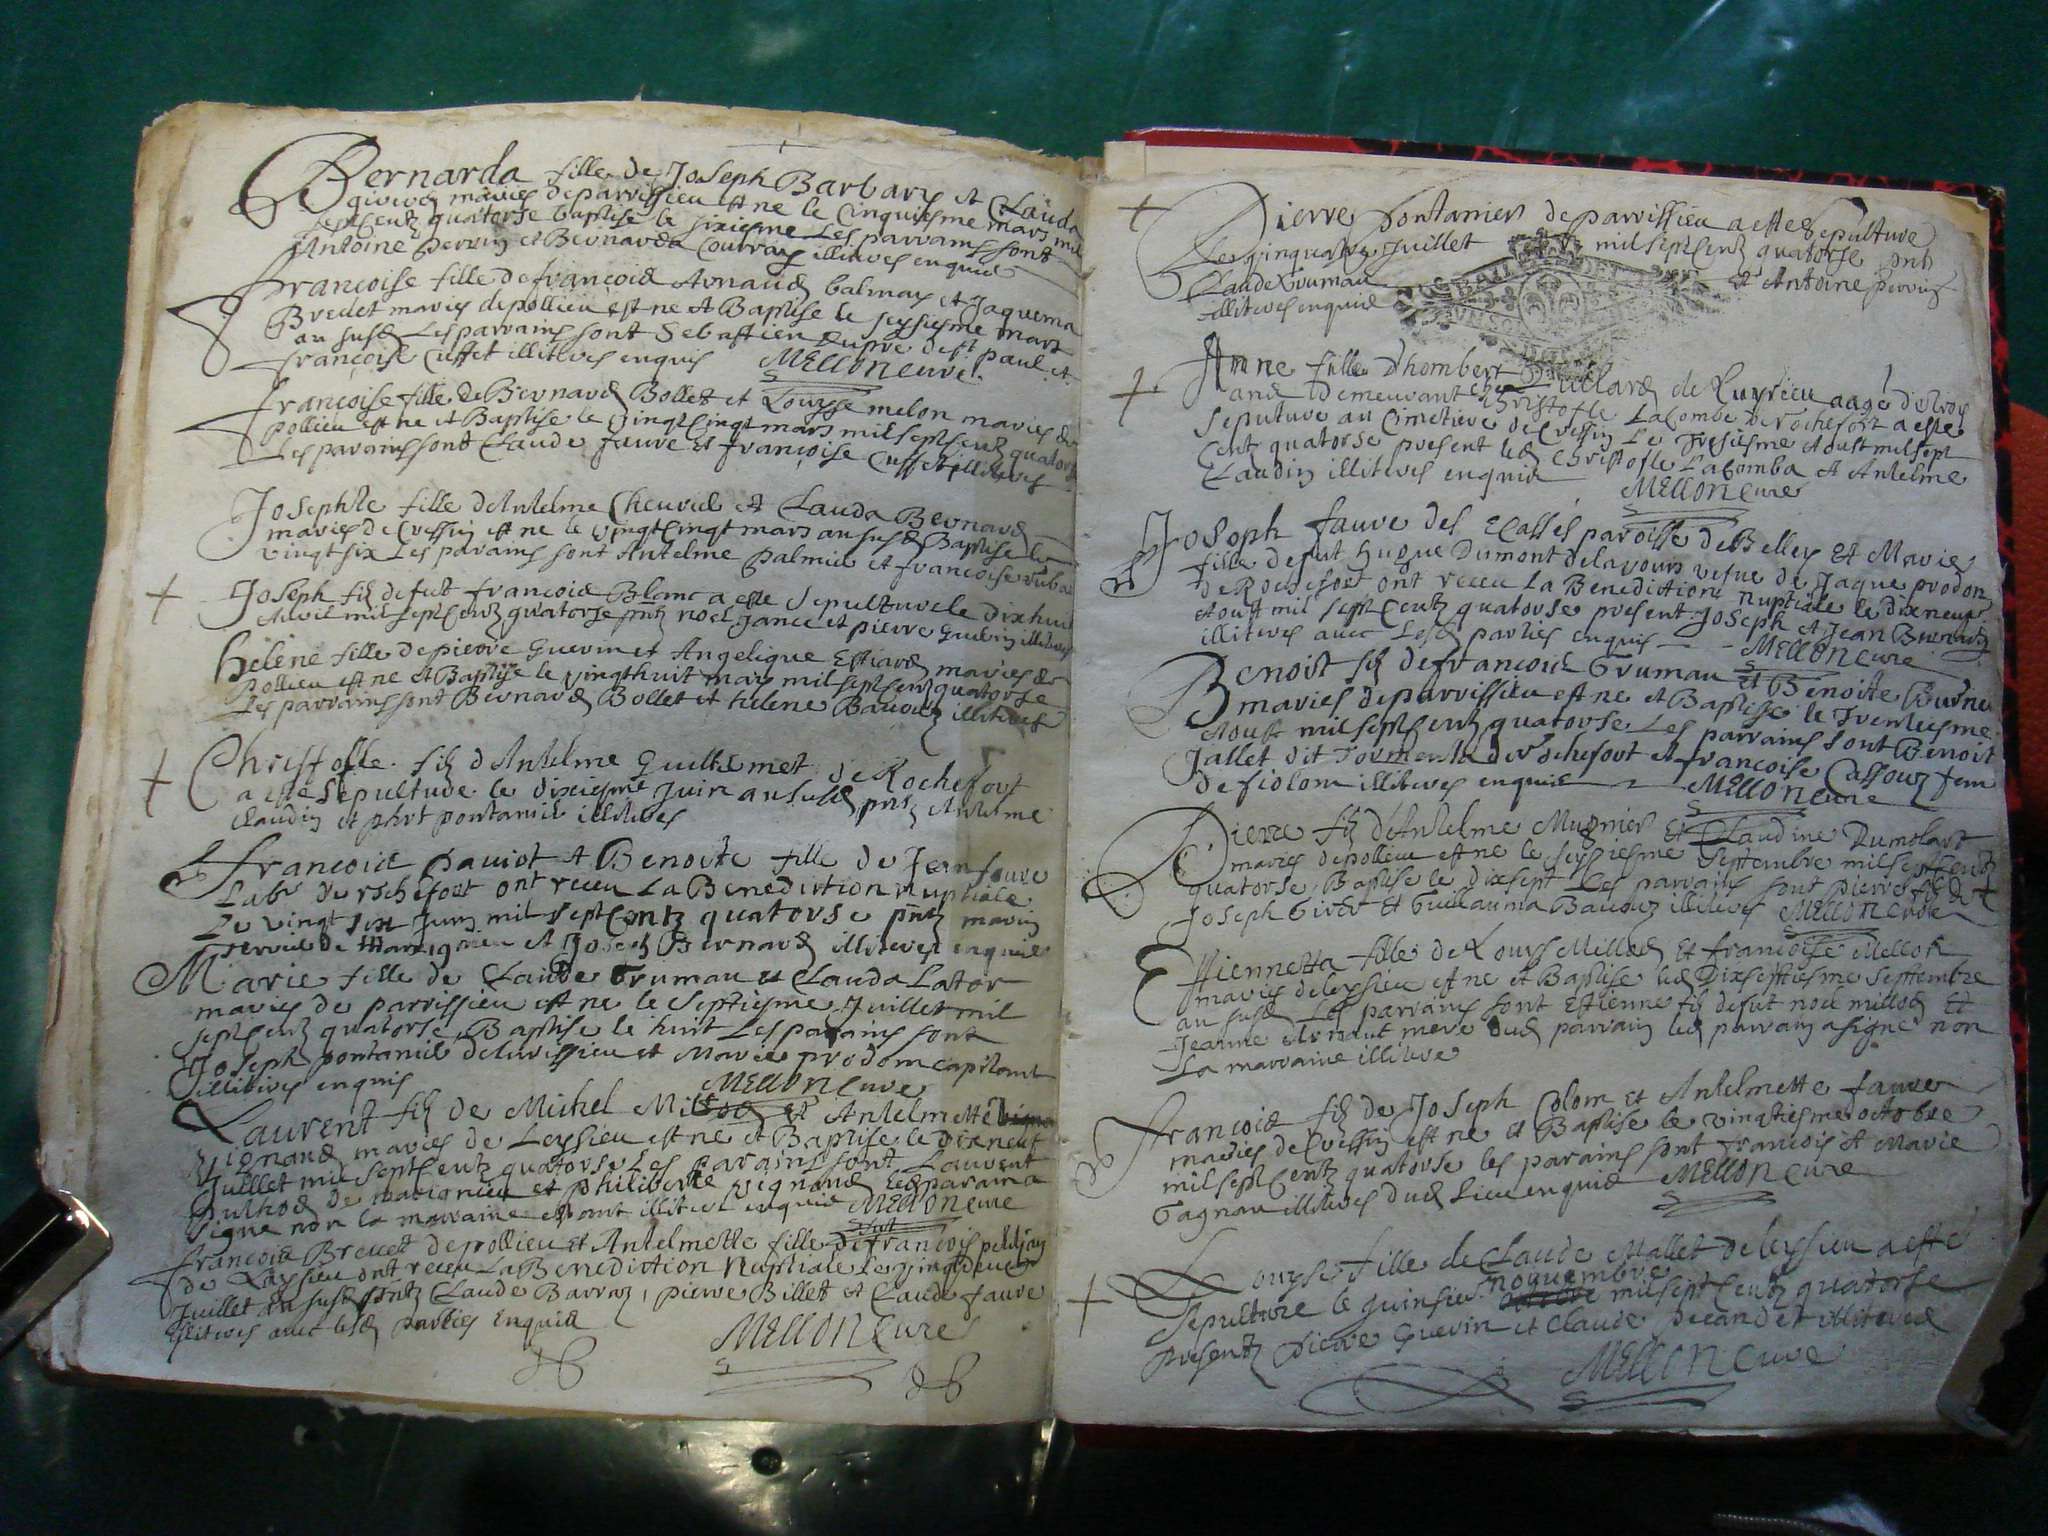 Bernarda fille de Joseph Barbary et Clauda
mariés de parvissieu est ne le Cinquiesme mars mil
septcentz quatorse baptise le sixiesme Les parrains sont
Antoine perrin et Bernarda Courray illiteres enquis
francoise fille de francois Arnaud balmay et Jaquema
Bredet maries de pollieu est ne et Baptise le seysiesme mars
an susd Les parrains sont Sebastien dupre de st paul et
francoise Cusset illiteres enquis MELLON cure
francoise fille de Bernard Bollet et Louyse melon maries de
pollieu est ne et Baptise le vingt Cinqt mars mil septcentz quatorse
Les parains sont Claude fauvre Et francoise Cusset illiteres
Josephte fille dAntelme Cheurel et Clauda Bernard
maries de Cressin est ne le vingt Cinqt mars an susd Baptise le
vingt six Les parains sont Antelme palmier et francoise
Joseph fiz de fut francois Blanc a este sepulture le dixhuit
Avril mil septcentz quatorse pntz noel Jance et pierre Guerin illiteres
helene fille de pierre Guerin et Angelique Estiard maries de
Pollieu est ne et Baptise le vingthuit mars mil septcentz quatorse
Les parrains sont Bernard Bollet et helene Bauduz illiteres
Christofle fiz dAntelme Guilliermet de Rochefort
a este sepulture le dixiesme Juin an susd pntz Antelme
Claudin et phrt pontanier illiteres
francois paviot et Benoite fille de Jean fauvre
Labr de rochefort ont receu La Benediction nuptiale
Le vingt six Juin mil sept Centz quatorse pntz marin
de et Joseph Bernard illiteres enquis
Marie fille de Claude Truman et Clauda Lator
maries de parvissieu est ne le septiesme Juillet mil
septcentz quatorse Baptise le huit Les parains sont
Joseph pontanier de et Marie prodom capitant
illiteres enquis MELLON Cure
Laurent fiz de Michel Milliod et Antelmette
Vignand maries de Leysieu est ne et Baptise le dixneuf
Juillet mil septcentz quatorse Les parains sont Laurent
de marignieu et philiberte vignand led parain a
signe non la marraine estant illitere enquise MELLON Cure
francois Breuet de pollieu et Antelmette fille de fut francois petitjan
de Leysieu ont receu La Benediction Nuptiale Le vingtdeux
Juillet an susd pntz Claude Barraz, pierre Billet et Claude fauvre
Illiteres avec lesd parties Enquis
MELLON Cure
Pierre pontanier de parvissieu a este sepulture
Le vingtquatre Juillet mil septcentz quatorse pntz
Claude Truman et Antoine perrin
illiteres enquis
Anne fille dhombert de Luyrieu aage de trois
ans demeurant chez Christofle Lacombe de rochefort a este
sepulture au Cimetiere de Cressin Le Tresiesme Aoust mil sept
Centz quatorse present led Christofle Lacomba et Antelme
Claudin illiteres enquis MELLON Cure
Joseph fauvre des Ecasses paroisse de Belley Et Marie
fille de fut hugue Dumont de lavours vefue de Jaque prodon
de Rochefort ont receu La Benediction nuptiale le dixneuf
Aoust mil sept Centz quatorse present Joseph et Jean Bernard
illiteres avec Lesd parties enquis MELLON Cure
Benoist fiz de francois Truman et Benoite Burnet
maries de parvissieu est ne et Baptise le Trentiesme
Aoust mil septcentz quatorse Les parrains sont Benoit
Jallet dit Tormenta de rochefort et francoise Cassouz fem
de fiolom illiteres enquis MELLON Cure
Pierre fiz dAntelme Mugnier Et Claudine Dumolart
maries de pollieu est ne le seysiesme Septembre mil septCentz
quatorse Baptise le dixsept Les parrains sont pierre fiz de
Joseph Tiver Et Guillauma Bauduz illiteres MELLON Cure
Etiennetta fille de Louys Milliod Et francoise Mellon
maries de leysieu est ne et Baptise led Dixseptiesme Septembre
an susd Les parrains sont Estienne fiz de fut noel milliod Et
Jeanne Arnaut mere dud parrain led parrain a signe non
La marraine illitere
francois fiz de Joseph Colom Et Antelmette fauvre
maries de Cressin est ne et Baptise le vingtiesme octobre
mil septCentz quatorse les parains sont francois et Marie
Gagnan illiteres dud Lieu enquis MELLON Cure
Louyse fille de Claude Mallet de leysieu a este
novembre
sepulture le quinsie mil sept Centz quatorse
presentz Pierre Guerin et Claude illiteres
MELLON Cure